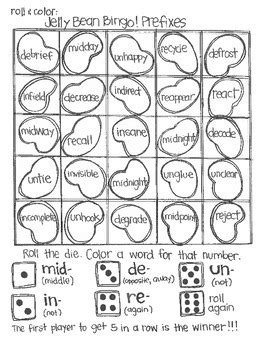 roll & color:
Jelly Bean Bingo! Prefixes
debrief midday unhappy recycle defrost
infield decrease indirect reappear react
midway recall insane midnight decode
untie invisible midnight unglue unclear
incomplete unhook degrade midpoint reject
Roll the die. Color a word for that number.
mid- de- un-
(middle) (opposite, away) (not)
in- re- roll
(not) (again) again
The first player to get 5 in a row is the winner!!!